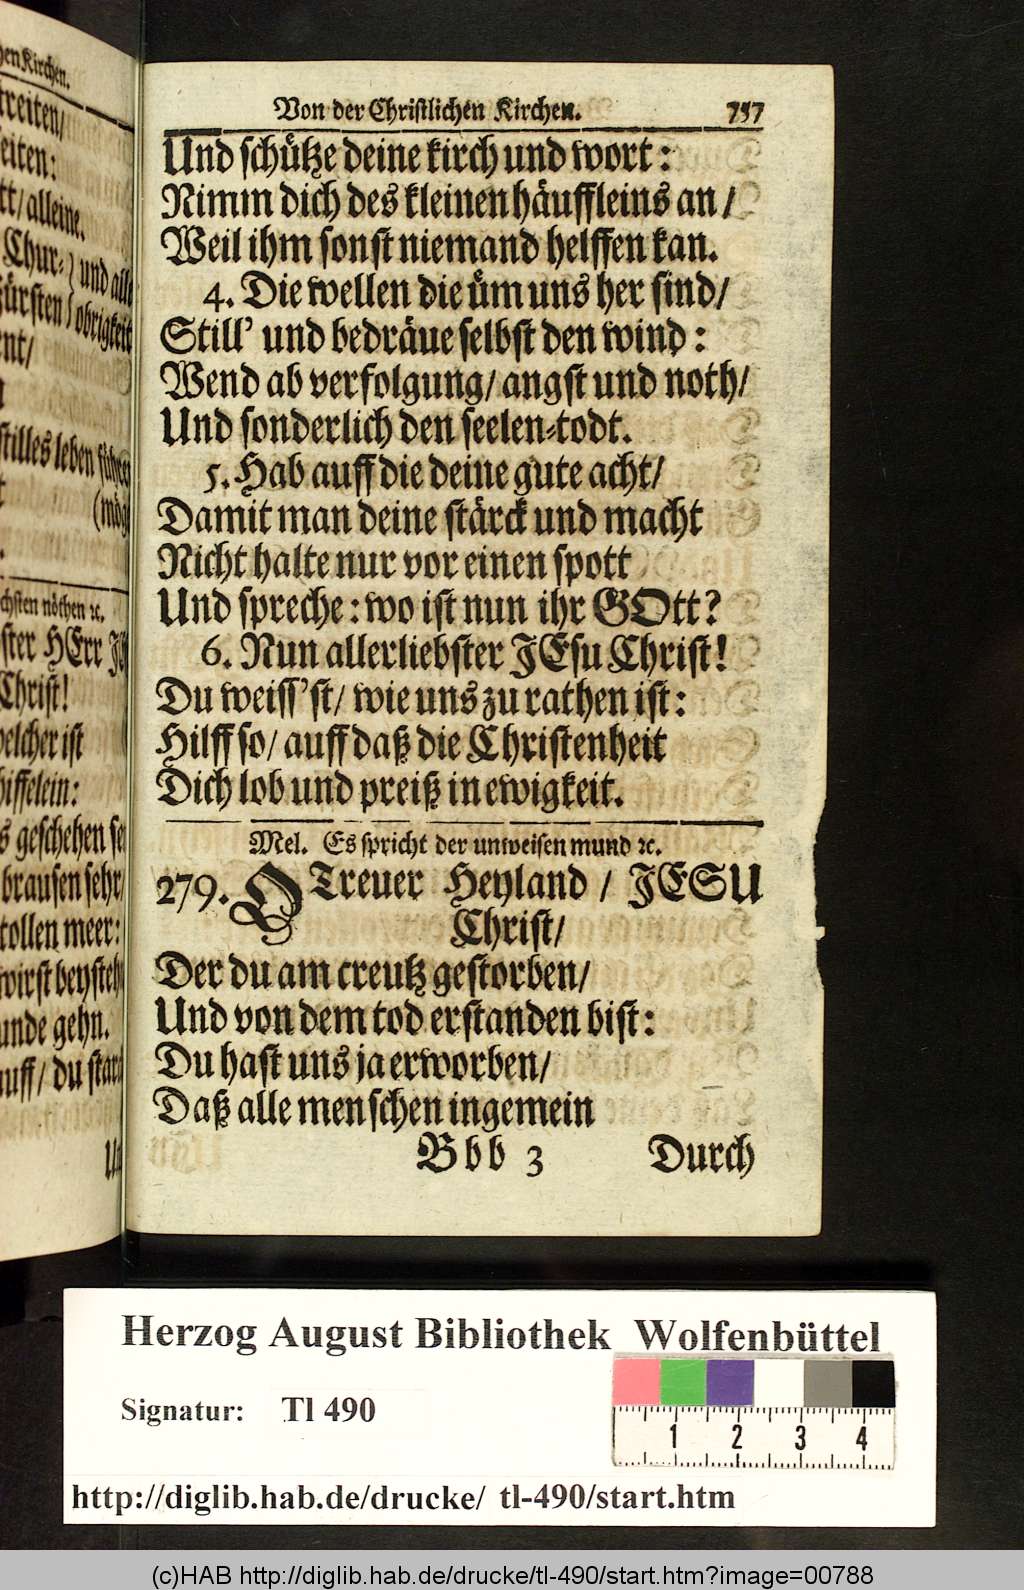 hen Kirchen.
treiten/
eiten:
tt/ alleine.
Chur-
ürsten
und alle
obrigkeit
nt/
stilles leben führen
(mög
chsten nöthen ꝛc.
ster HErr JE
Christ!
elcher ist
hiffelein:
s geschehen se
brausen sehr/
tollen meer:
wirst beysteh
unde gehn.
auff/ du star
Un
Von der Christlichen Kirchen. 757
Und schütze deine kirch und wort:
Nimm dich des kleinen häuffleins an/
Weil ihm sonst niemand helffen kan.
4. Die wellen die üm uns her sind/
Still’ und bedräue selbst den wind:
Wend ab verfolgung/ angst und noth/
Und sonderlich den seelen-todt.
5. Hab auff die deine gute acht/
Damit man deine stärck und macht
Nicht halte nur vor einen spott
Und spreche: wo ist nun ihr GOtt?
6. Nun allerliebster JEsu Christ!
Du weiss’st/ wie uns zu rathen ist:
Hilff so/ auff daß die Christenheit
Dich lob und preiß in ewigkeit.
Mel. Es spricht der unweisen mund ꝛc.
279. O Treuer Heyland / JESU
Christ/
Der du am creutz gestorben/
Und von dem tod erstanden bist:
Du hast uns ja erworben/
Daß alle menschen ingemein
Bbb 3 Durch
Herzog August Bibliothek Wolfenbüttel
Signatur: Tl 490
1 2 3 4
http://diglib.hab.de/drucke/ tl-490/start.htm
(c)HAB http://diglib.hab.de/drucke/tl-490/start.htm?image=00788